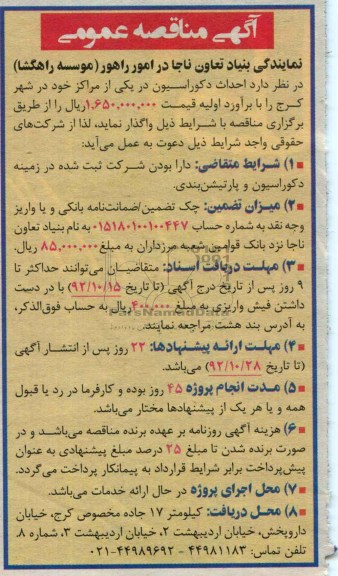 آگهی مناقصه عمومی
نمایندگی بنیاد تعاون ناجا در امور راهور (موسسه راهگشا)
در نظر دارد احداث دکوراسیون در یکی از مراکز خود در شهر
کرج را با برآورد اولیه قیمت ۱,۶۵۰,۰۰۰,۰۰۰ریال را از طریق
برگزاری مناقصه با شرایط ذیل واگذار نماید، لذا از شرکت‌های
حقوقی واجد شرایط ذیل دعوت به عمل می‌آید:
۱) شرایط متقاضی: دارا بودن شرکت ثبت شده در زمینه
دکوراسیون و پارتیشن‌بندی.
۲) میزان تضمین: چک تضمین/ضمانت‌نامه بانکی و یا واریز
وجه نقد به شماره حساب ۰۱۵۱۸۰۱۰۰۱۰۰۴۴۷ به نام بنیاد تعاون
ناجا نزد بانک قوامین شعبه مرزداران به مبلغ ۸۵,۰۰۰,۰۰۰ ریال.
۳) مهلت دریافت اسناد: متقاضیان می‌توانند حداکثر تا
۹ روز پس از تاریخ درج آگهی (تا تاریخ ۹۲/۱۰/۱۵) با در دست
داشتن فیش واریزی به مبلغ ۴۰۰,۰۰۰ ریال به حساب فوق‌الذکر،
به آدرس بند هشت مراجعه نمایند.
ParsNamadData
۴) مهلت ارائه پیشنهادها: ۲۲ روز پس از انتشار آگهی
(تا تاریخ ۹۲/۱۰/۲۸) می‌باشد.
۵) مدت انجام پروژه ۴۵ روز بوده و کارفرما در رد یا قبول
همه و یا هر یک از پیشنهادها مختار می‌باشد.
۶) هزینه آگهی روزنامه بر عهده برنده مناقصه می‌باشد و در
صورت برنده شدن تا مبلغ ۲۵ درصد مبلغ پیشنهادی به عنوان
پیش‌پرداخت برابر شرایط قرارداد به پیمانکار پرداخت می‌گردد.
۷) محل اجرای پروژه در حال ارائه خدمات می‌باشد.
۸) محل دریافت: کیلومتر ۱۷ جاده مخصوص کرج، خیابان
داروپخش، خیابان اردیبهشت ۲، خیابان اردیبهشت ۳، شماره ۸.
تلفن تماس: ۴۴۹۸۱۱۸۳ - ۴۴۹۸۹۶۹۲-۰۲۱